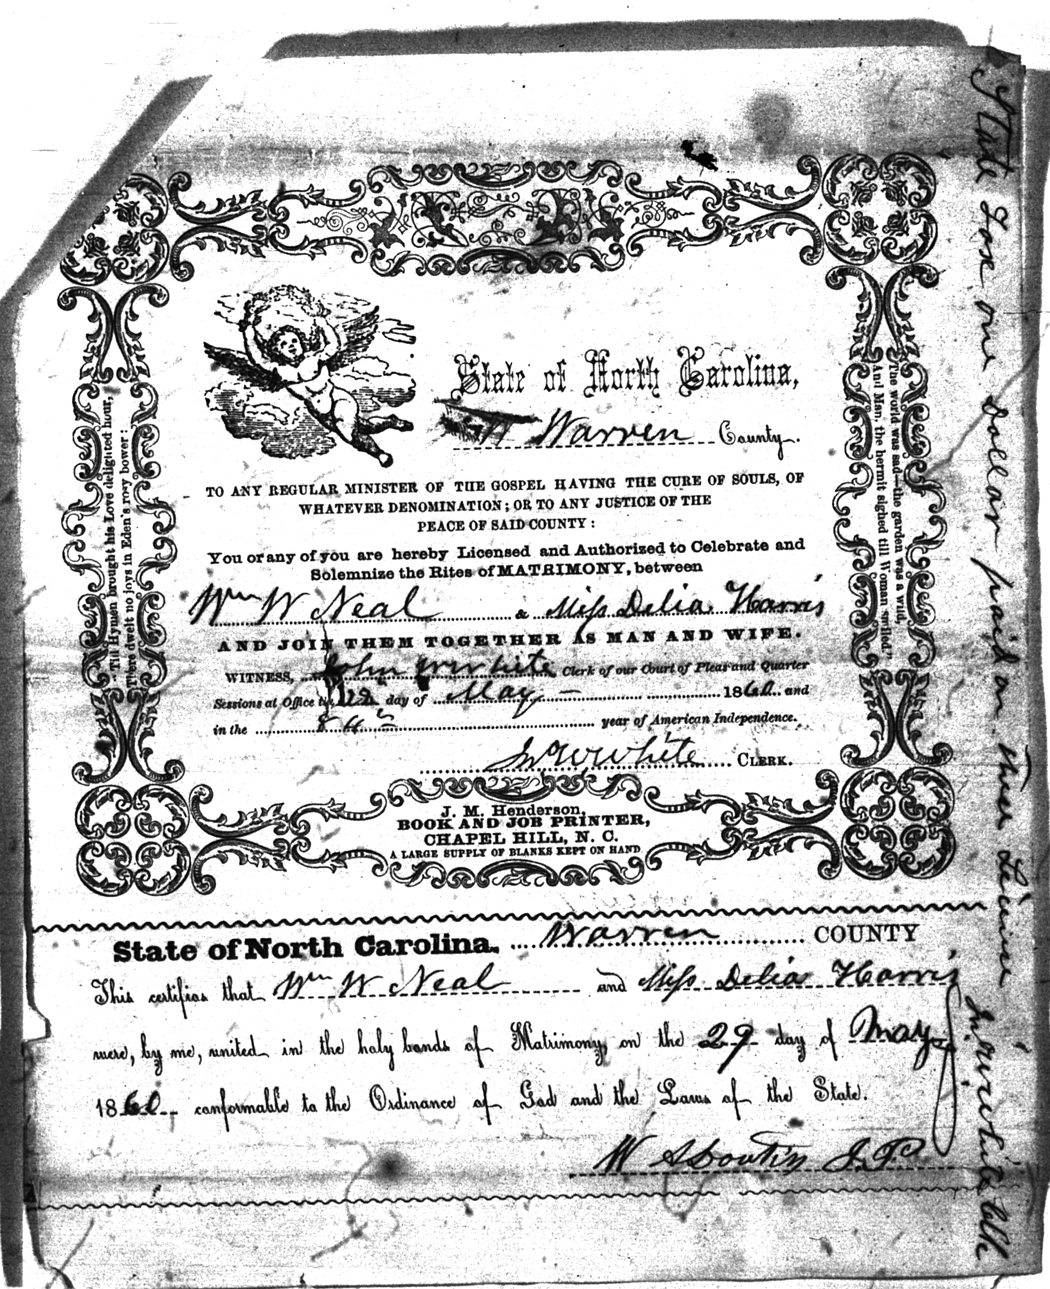 State of North Carolina,
Warren County.
TO ANY REGULAR MINISTER OF THE GOSPEL HAVING THE CURE OF SOULS, OF
WHATEVER DENOMINATION; OR TO ANY JUSTICE OF THE
PEACE OF SAID COUNTY:
You or any of you are hereby Licensed and Authorized to Celebrate and
Solemnize the Rites of MATRIMONY, between
Wm W Neal & Miss Delia Harris
AND JOIN THEM TOGETHER AS MAN AND WIFE.
WITNESS, John W White Clerk of our Court of Pleas and Quarter
Sessions at Office the 22d day of May 1860 and
in the 84th year of American Independence.
Jno W White CLERK.
J. M. Henderson,
BOOK AND JOB PRINTER,
CHAPEL HILL, N. C.
A LARGE SUPPLY OF BLANKS KEPT ON HAND
"Till Hymen brought his Love delighted hour,
There dwelt no joys in Eden's rosy bower:
The world was sad—the garden was a wild,
And Man, the hermit sighed till Woman smiled."
State of North Carolina. Warren COUNTY
This certifies that Wm W Neal and Miss Delia Harris
were, by me, united in the holy bands of Matrimony, on the 29 day of May
1860 conformable to the Ordinance of God and the Laws of the State.
W A J.P.
State Tax one Dollar paid on this Licince Jno W White Clk